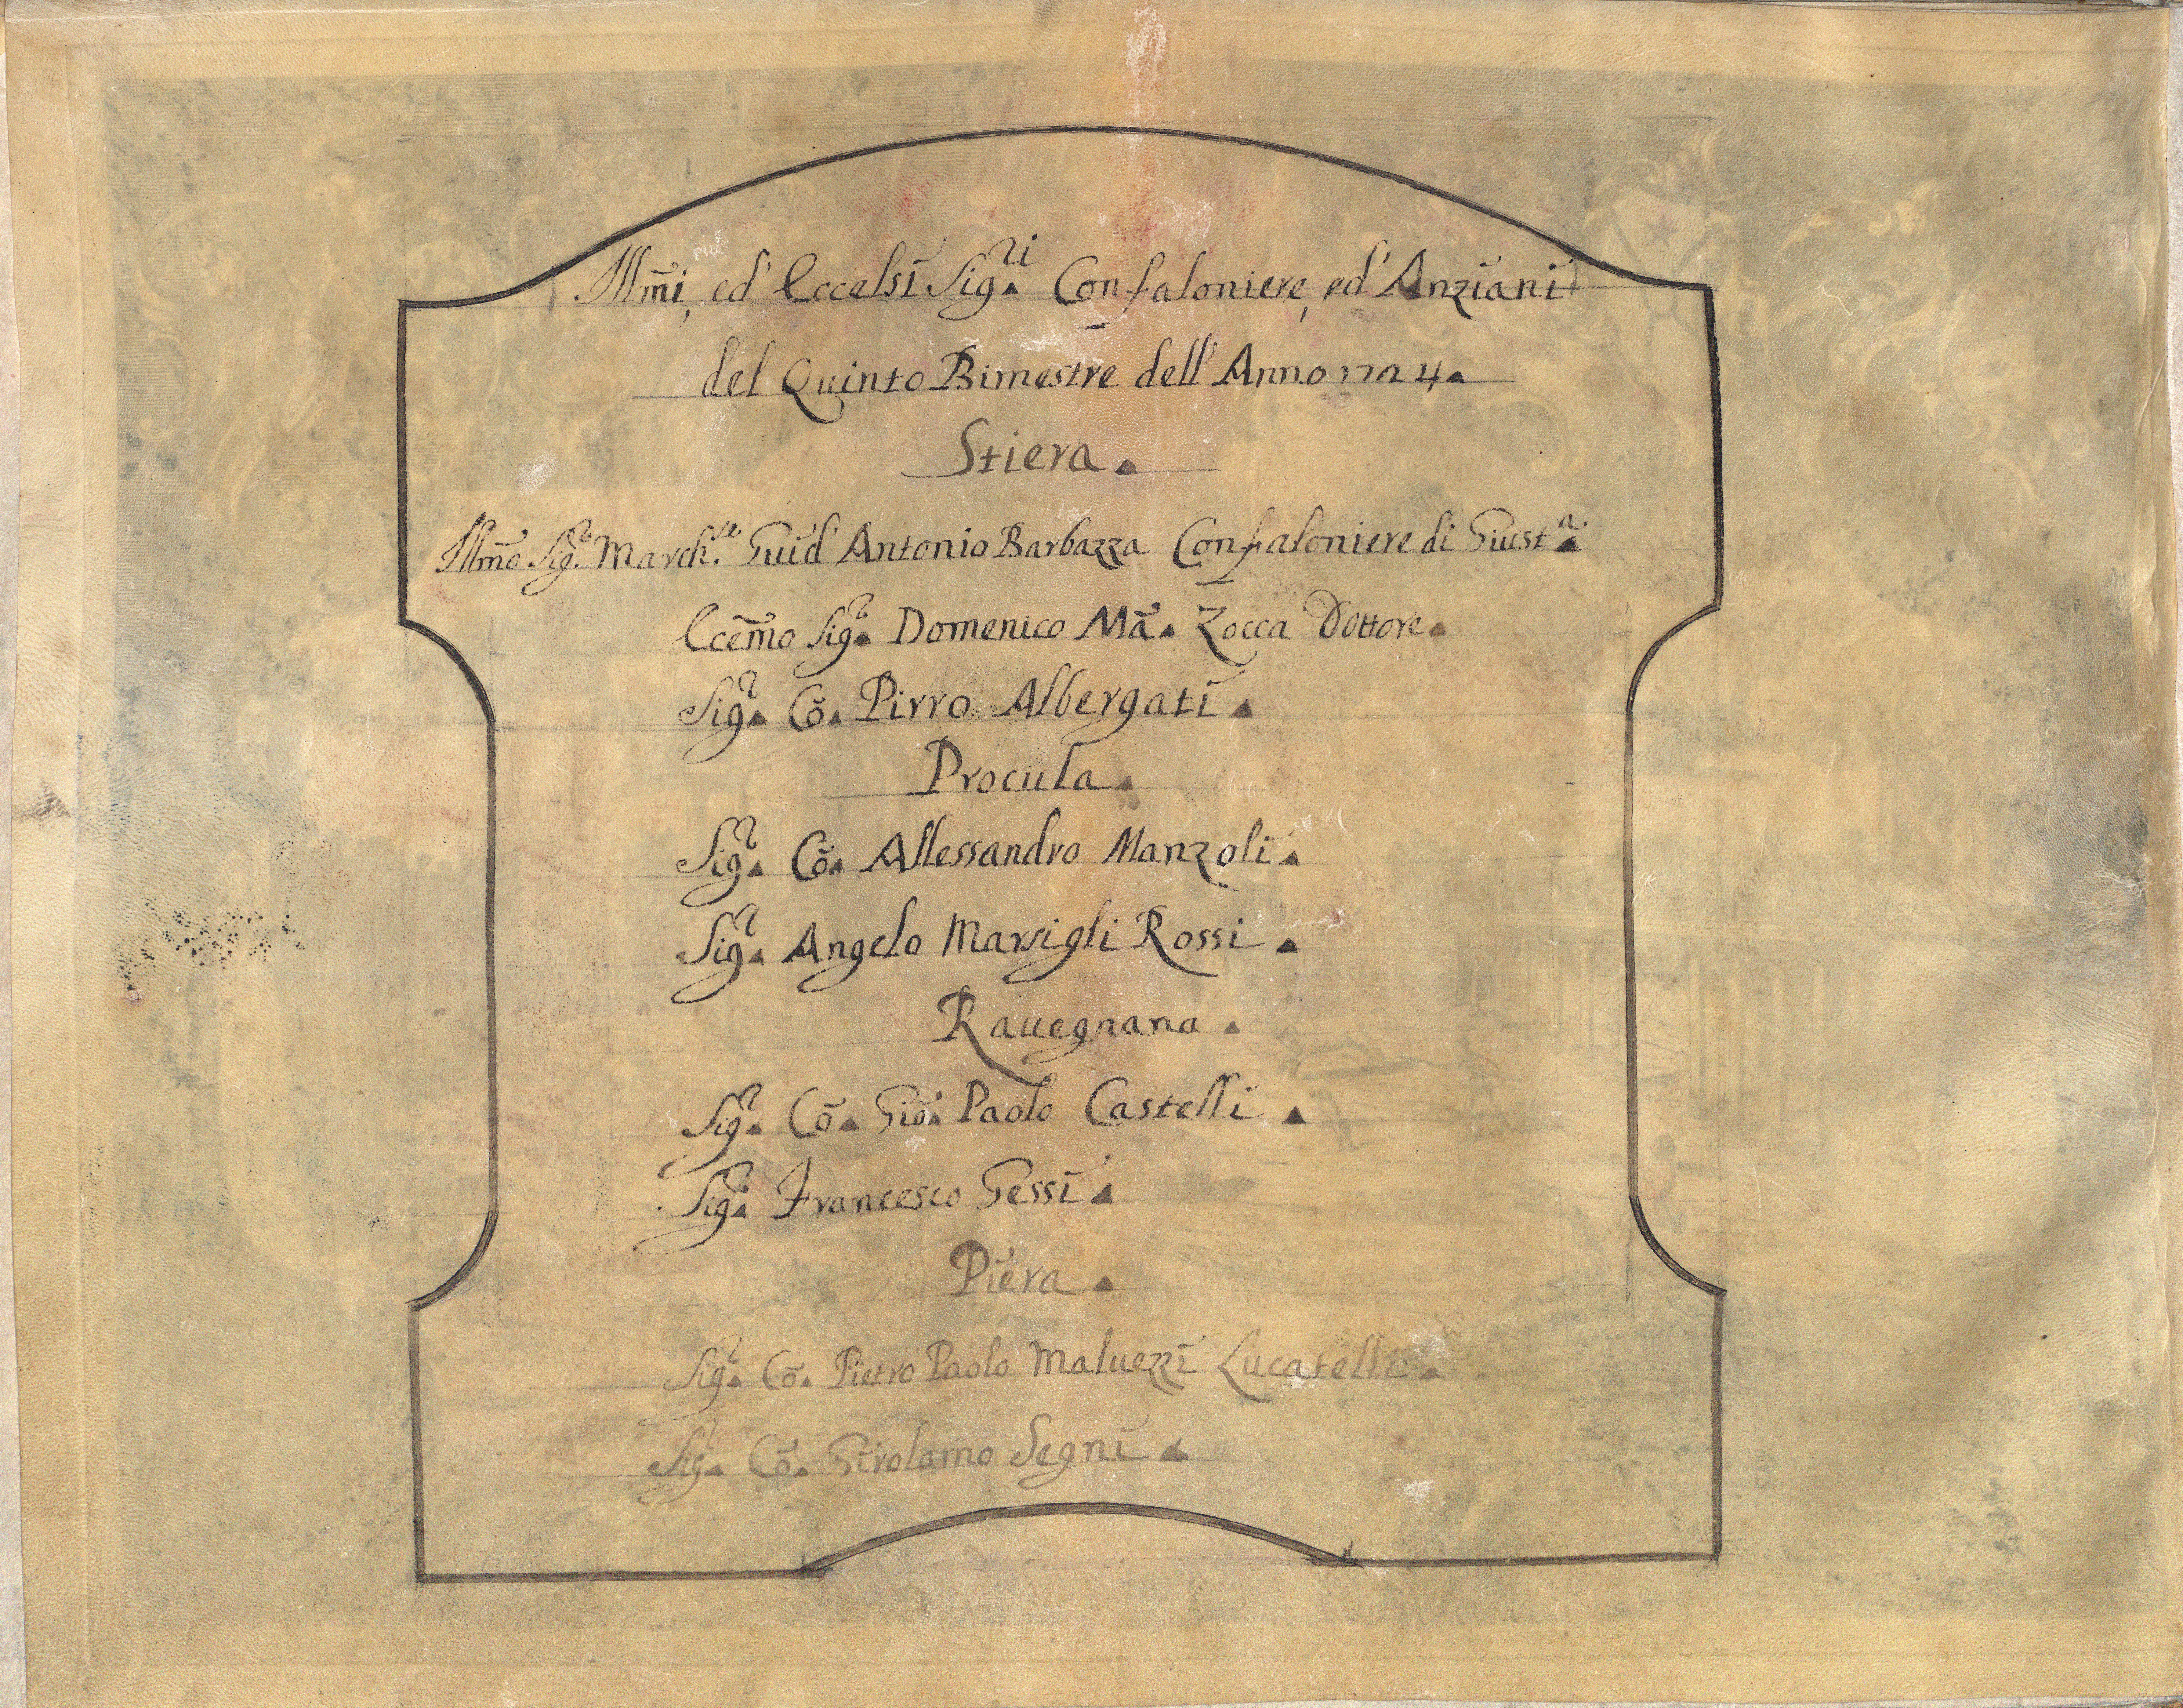 Illmi, ed' Eccelsi Sig.ri Confaloniere, ed' Anziani
del Quinto Bimestre dell' Anno 1724.
Stiera.
Illmo Sig.r March.se Guid' Antonio Barbazza Confaloniere di Giust.a
Eccemo Sig.r Domenico Ma. Zocca Dottore.
Sig.r Co. Pirro Albergati.
Procula.
Sig.r Co. Allessandro Manzoli.
Sig.r Angelo Marsigli Rossi.
Rauegnana.
Sig.r Co. Gio. Paolo Castelli.
Sig.r Francesco Gessi.
Piera.
Sig.r Co. Pietro Paolo Maluezzi Lucatelli.
Sig.r Co. Girolamo Segni.